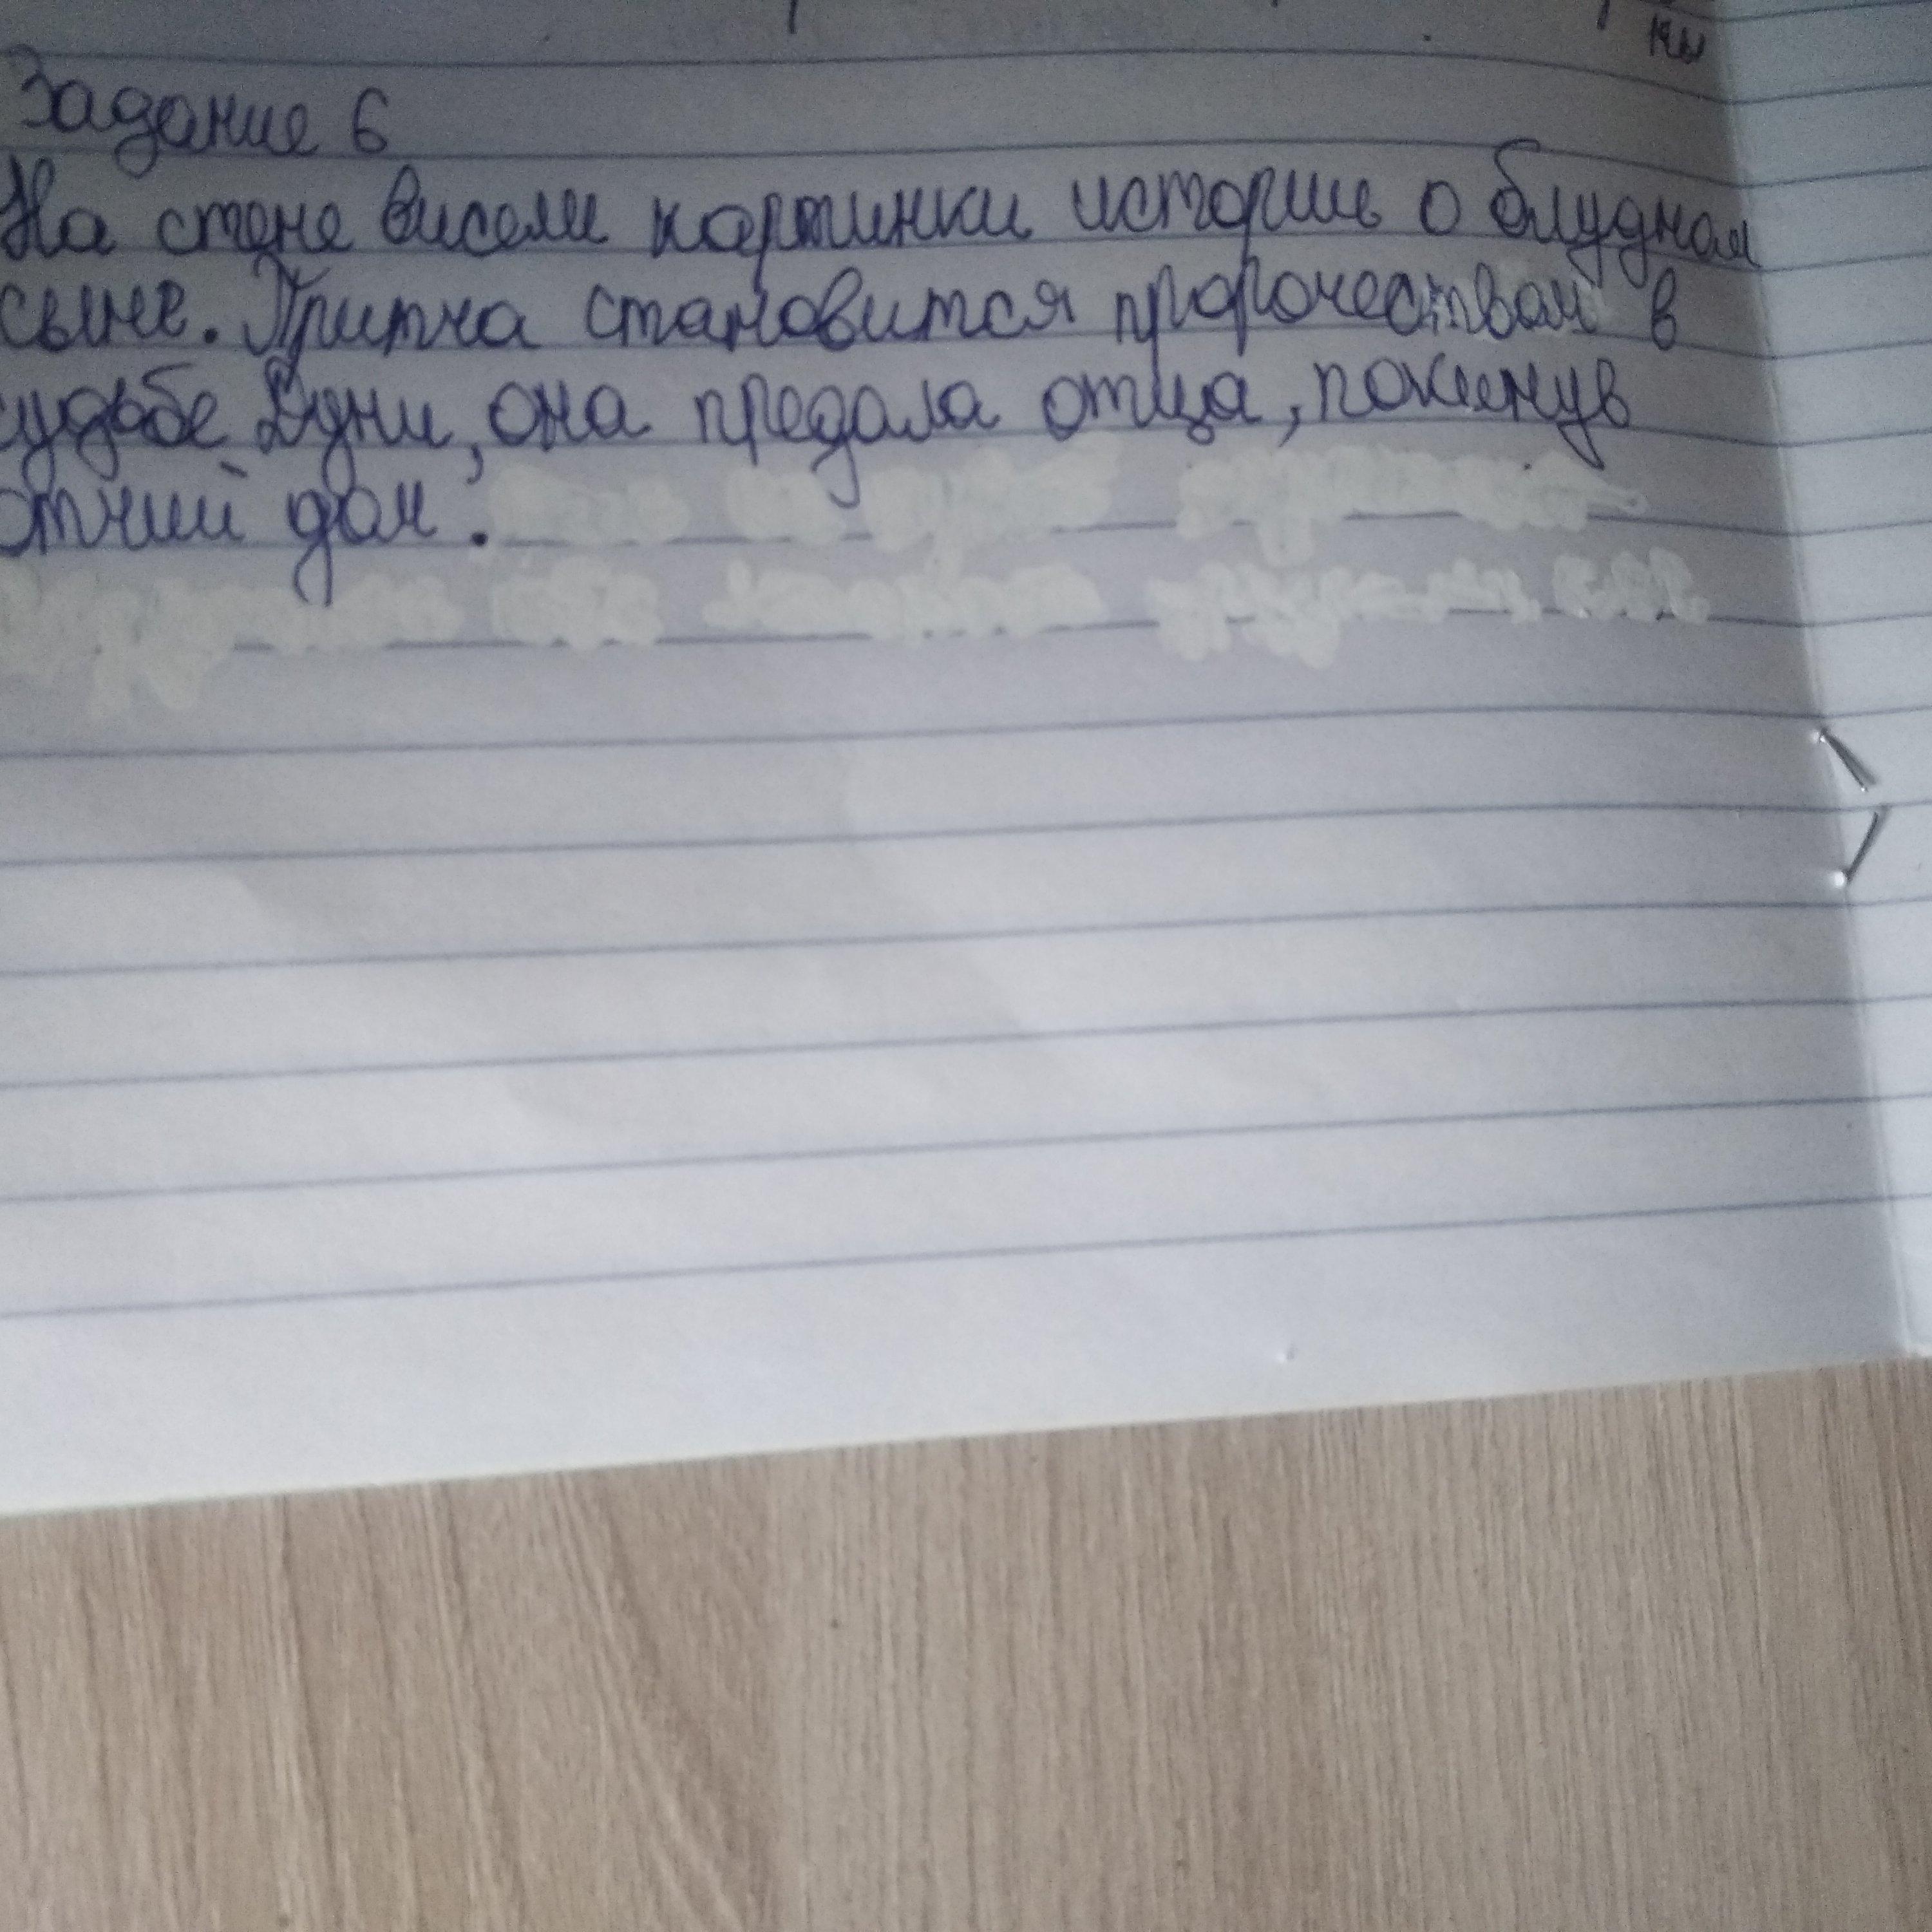 Задание 6
На стене висели картинки истории о блудном
сыне. Притча становится пророчеством в
судьбе Дуни, она предала отца, покинув
отчий дом.